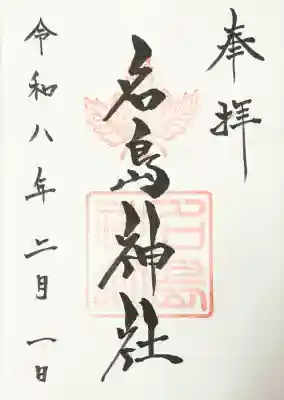 奉拝
名島神社
令和八年二月一日
名島神社